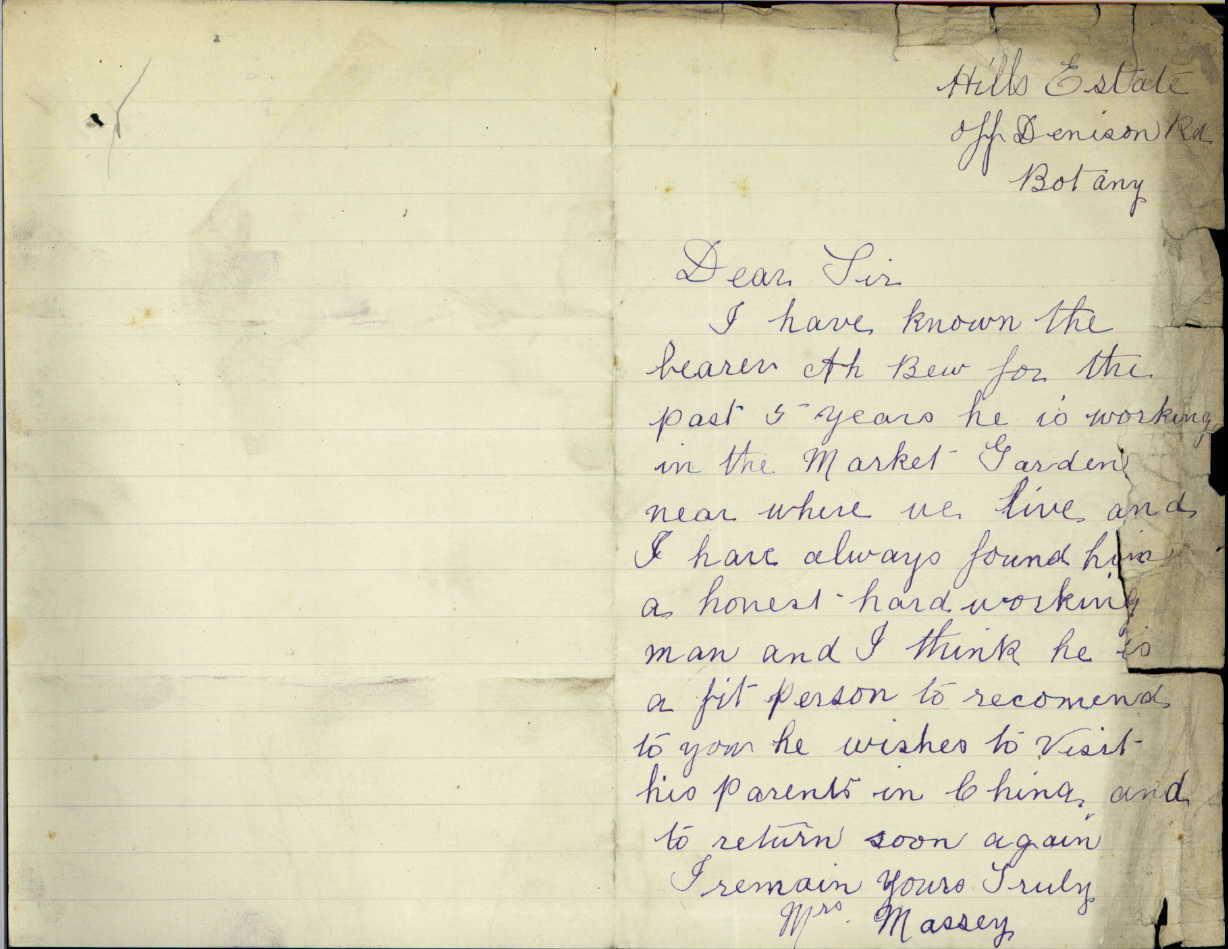 Hills Estate
off Denison Rd
Botany
Dear Sir
I have known the
bearer Ah Bew for the
past 5 years he is working
in the Market Garden
near where we live and
I have always found him
a honest hard working
man and I think he is
a fit person to recomend
to you he wishes to Visit
his parents in China and
to return soon again
I remain Yours Truly
Mrs. Massey